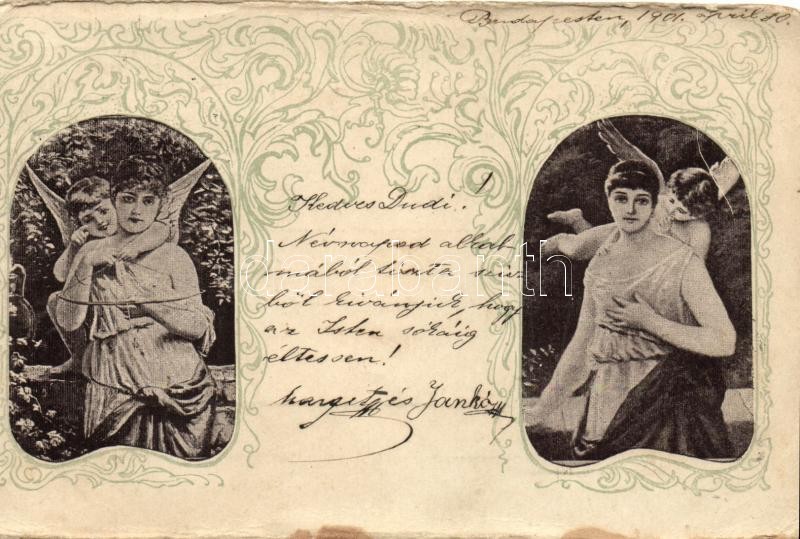 Budapesten, 1901. april 30.
Kedves Dudi!
Névnapod alkal-
mából tiszta szív-
ből kivánjuk, hogy
az Isten sokáig
éltessen!
Margit és Jankó
darabanth